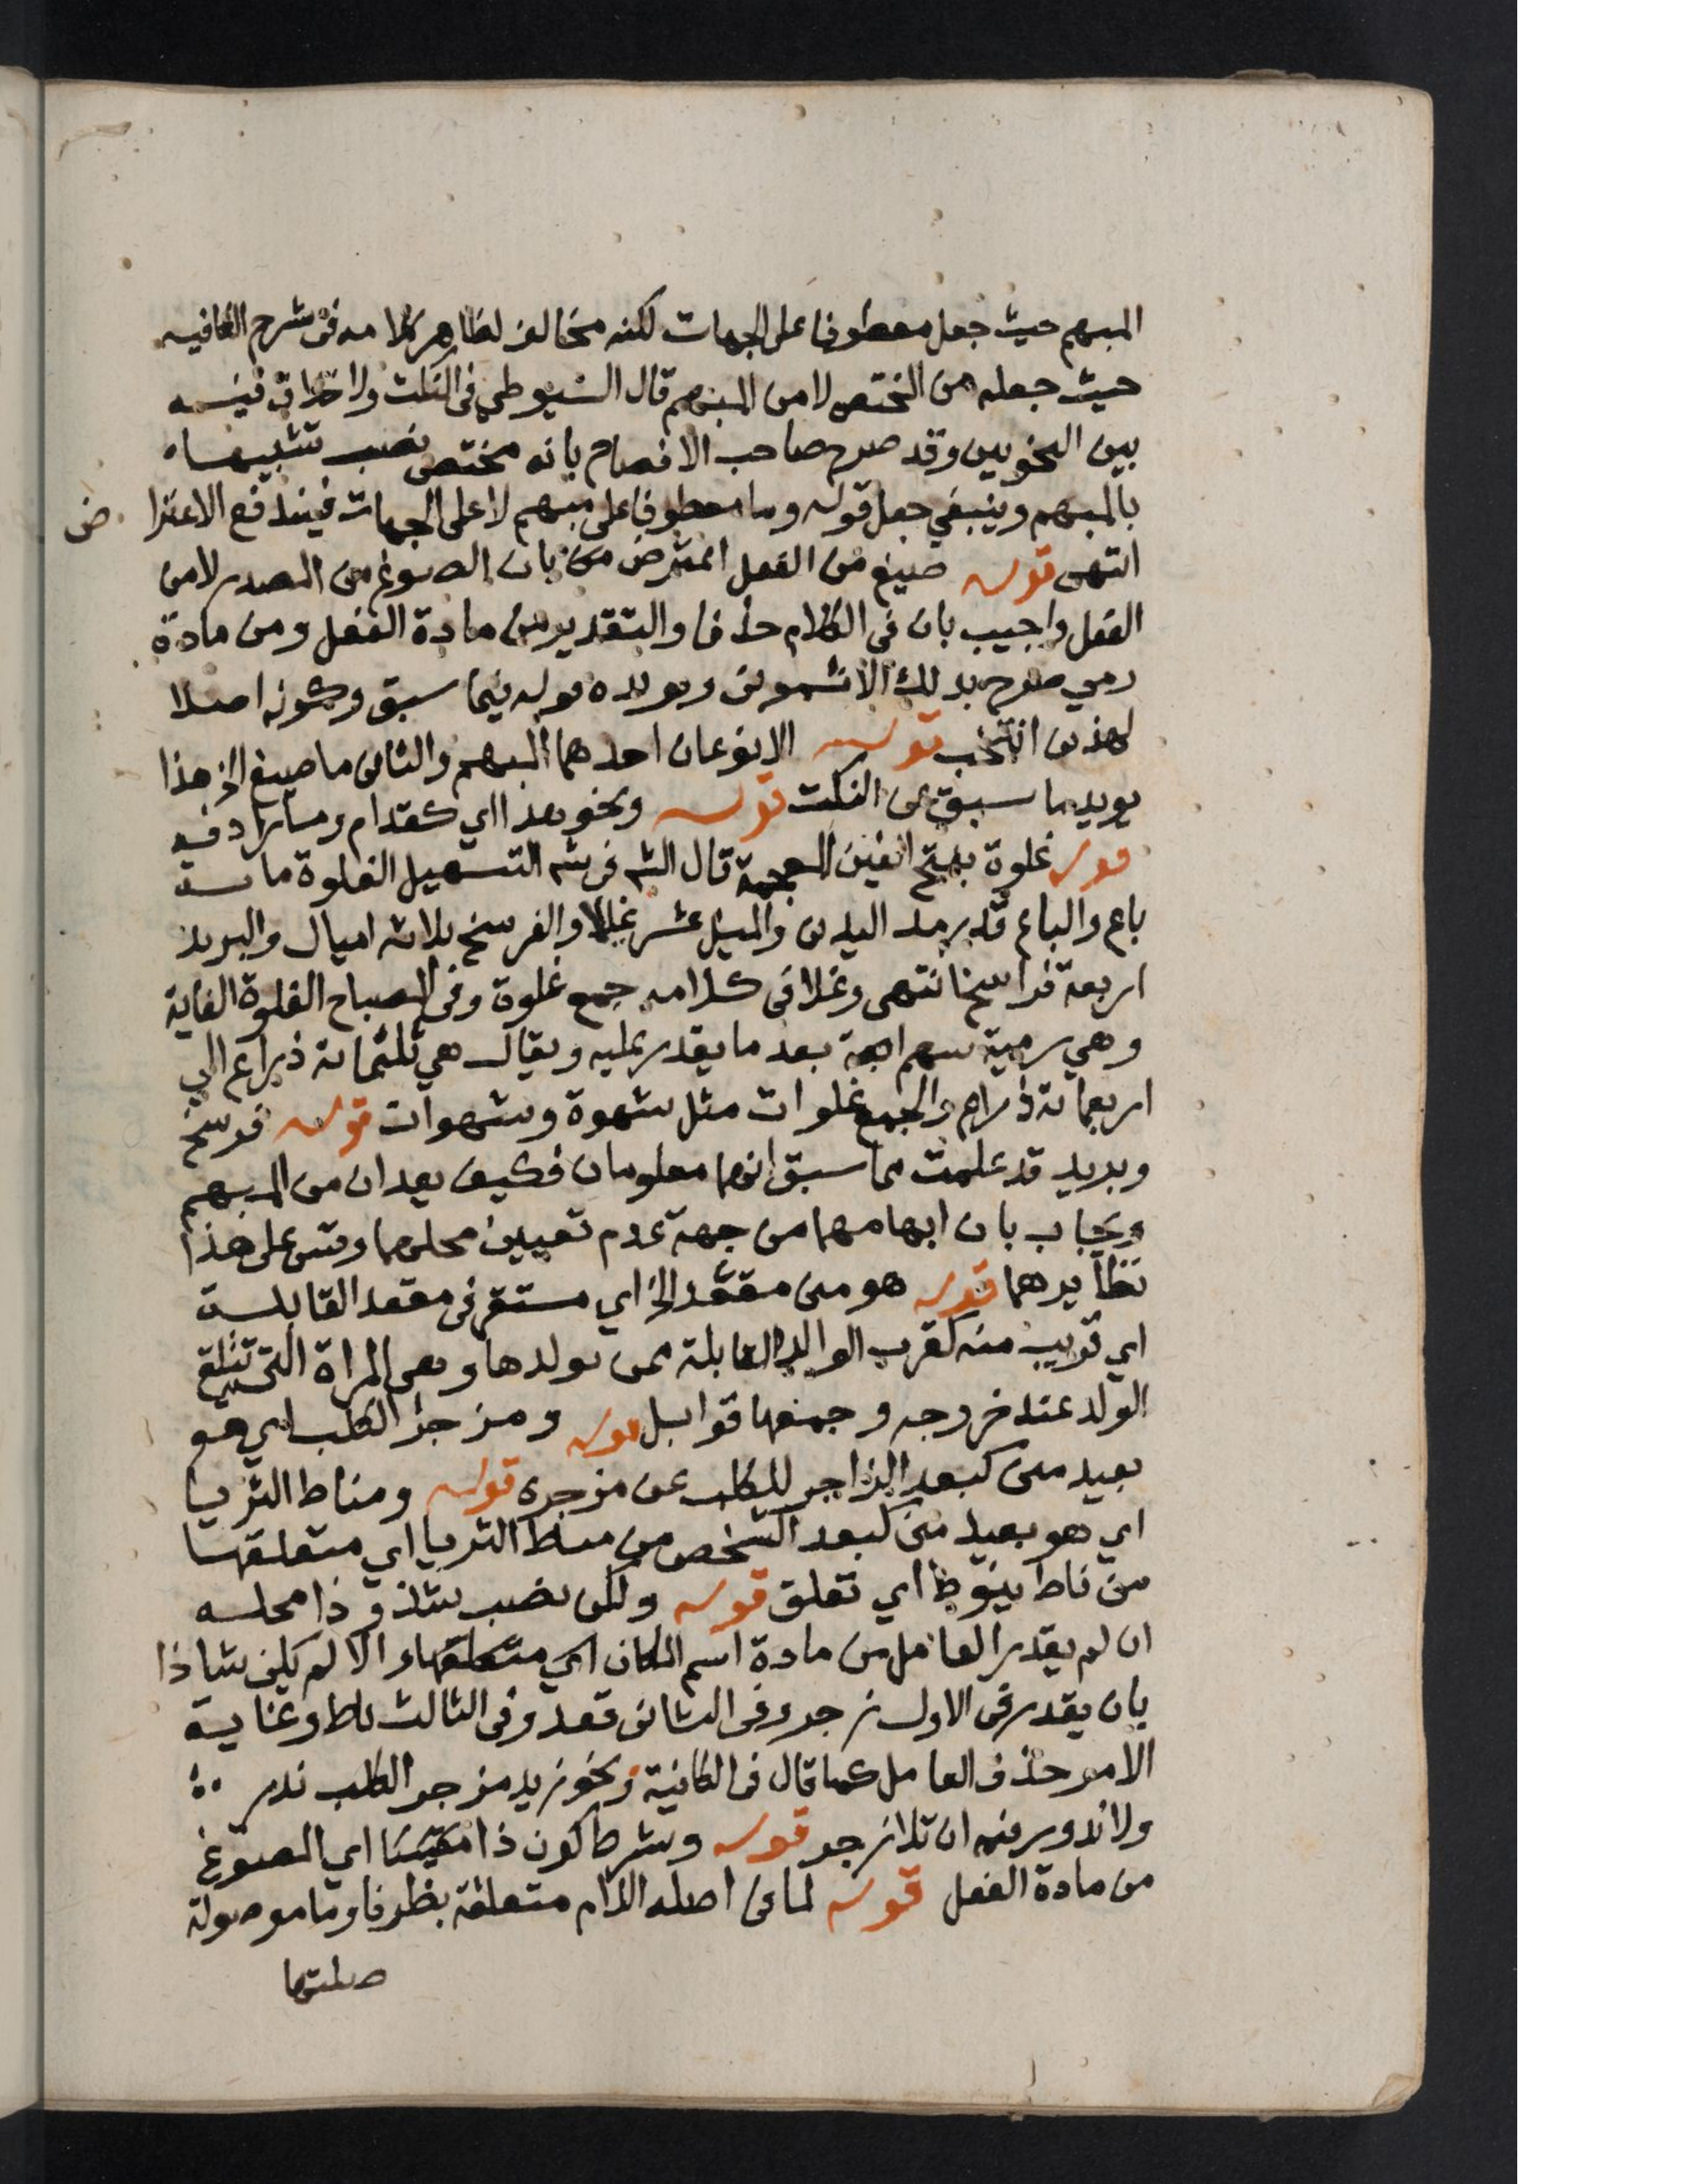 المبهم حيث جعل معطوفا على الجهات لكنه مخالف لظاهر كلامه فى شرح الكافيه
حيث جعله من المختص لا من المبهم قال السيوطي فى النكت ولا خلاف فيه
بين النحويين وقد صرح صاحب الافصاح بانه مختص نصب تشبيها
بالمبهم وينبغي جعل قوله وما معطوفا على مبهم لا على الجهات فيندفع الاعتراض
انتهى قوله صيغ من الفعل اعترض من بان الصوغ من المصدر لا من
الفعل واجيب بان فى الكلام حذفا والتقدير من مادة الفعل ومن مادة
رمي صرح بذلك الاشمونى ويويده قوله فيما سبق وكونه اصلا
لهذين انتخب قوله الا نوعان احدهما المبهم والثانى ما صيغ الخ هذا
يويد ما سبق عن النكت قوله ونحو هذا اي كقدام ومايرادفه
قوله غلوة بفتح الغين المعجمة قال الش فى شه التسهيل الغلوة مائة
باع والباع قدر مد اليدين والميل عشر غلا والفرسخ ثلاثة اميال والبريد
اربعة فراسخ انتهى وغلا فى كلامه جمع غلوة وفى المصباح الغلوة الغاية
وهي رمية سهم ابعد ما يقدر عليه ويقال هي ثلثمائة ذراع الى
اربعمائة ذراع والجمع غلوات مثل شهوة وشهوات قوله فرسخ
وبريد قد علمت مما سبق انهما معلومان فكيف يعدان من المبهم
ويجاب بان ابهامهما من جهة عدم تعيين محلهما وقس على هذا
نظايرهما قوله هو منى مقعد الخ اي مستقر فى مقعد القابلة
اي قريب منه كقرب الوالد القابلة ممن تولدها وهى المراة التى تتلقى
الولد عند خروجه وجمعها قوابل قوله ومزجر الكلب اي هو
بعيد منى كبعد الزاجر للكلب عن مزجره قوله ومناط الثريا
اي هو بعيد منى كبعد الشخص من مناط الثريا اي متعلقها
من ناط ينوط اي تعلق قوله ولكن نصب شذوذا محله
ان لم يقدر العامل من مادة اسم المكان اي متعلقها والا لم يكن شاذا
بان يقدر فى الاول زجر وفى الثانى قعد وفى الثالث ناط وغاية
الامر حذف العامل كما قال فى الكافية ونحو زيد مزجر الكلب ندر
ولا ندور فيه ان تلا زجر قوله وشرط كون ذا مقيسا اي المصوغ
من مادة الفعل قوله لما فى اصله اللام متعلقة بظرفا وما موصولة
صلتها